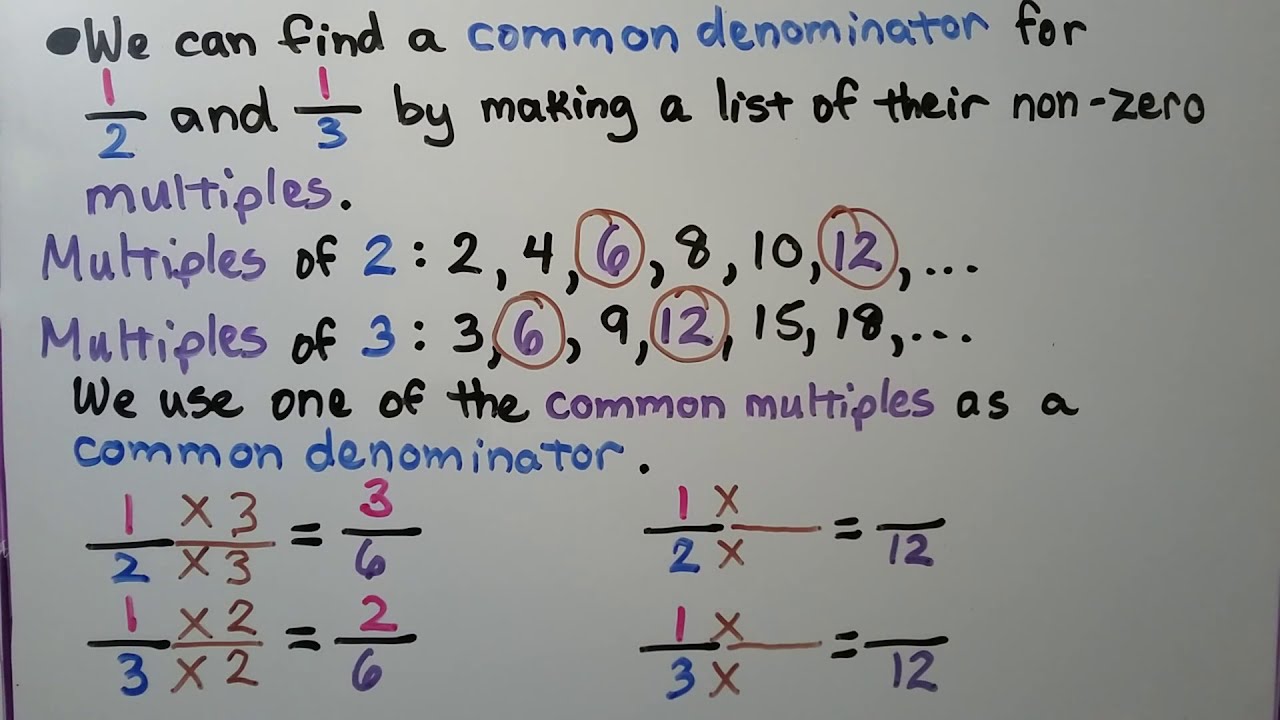 ●We can find a common denominator for
1/2 and 1/3 by making a list of their non-zero
multiples.
Multiples of 2: 2, 4, 6, 8, 10, 12, ...
Multiples of 3: 3, 6, 9, 12, 15, 18, ...
We use one of the common multiples as a
common denominator.
1 x 3 = 3
2 x 3 6
1 x 2 = 2
3 x 2 6
1 x =
2 x 12
1 x =
3 x 12